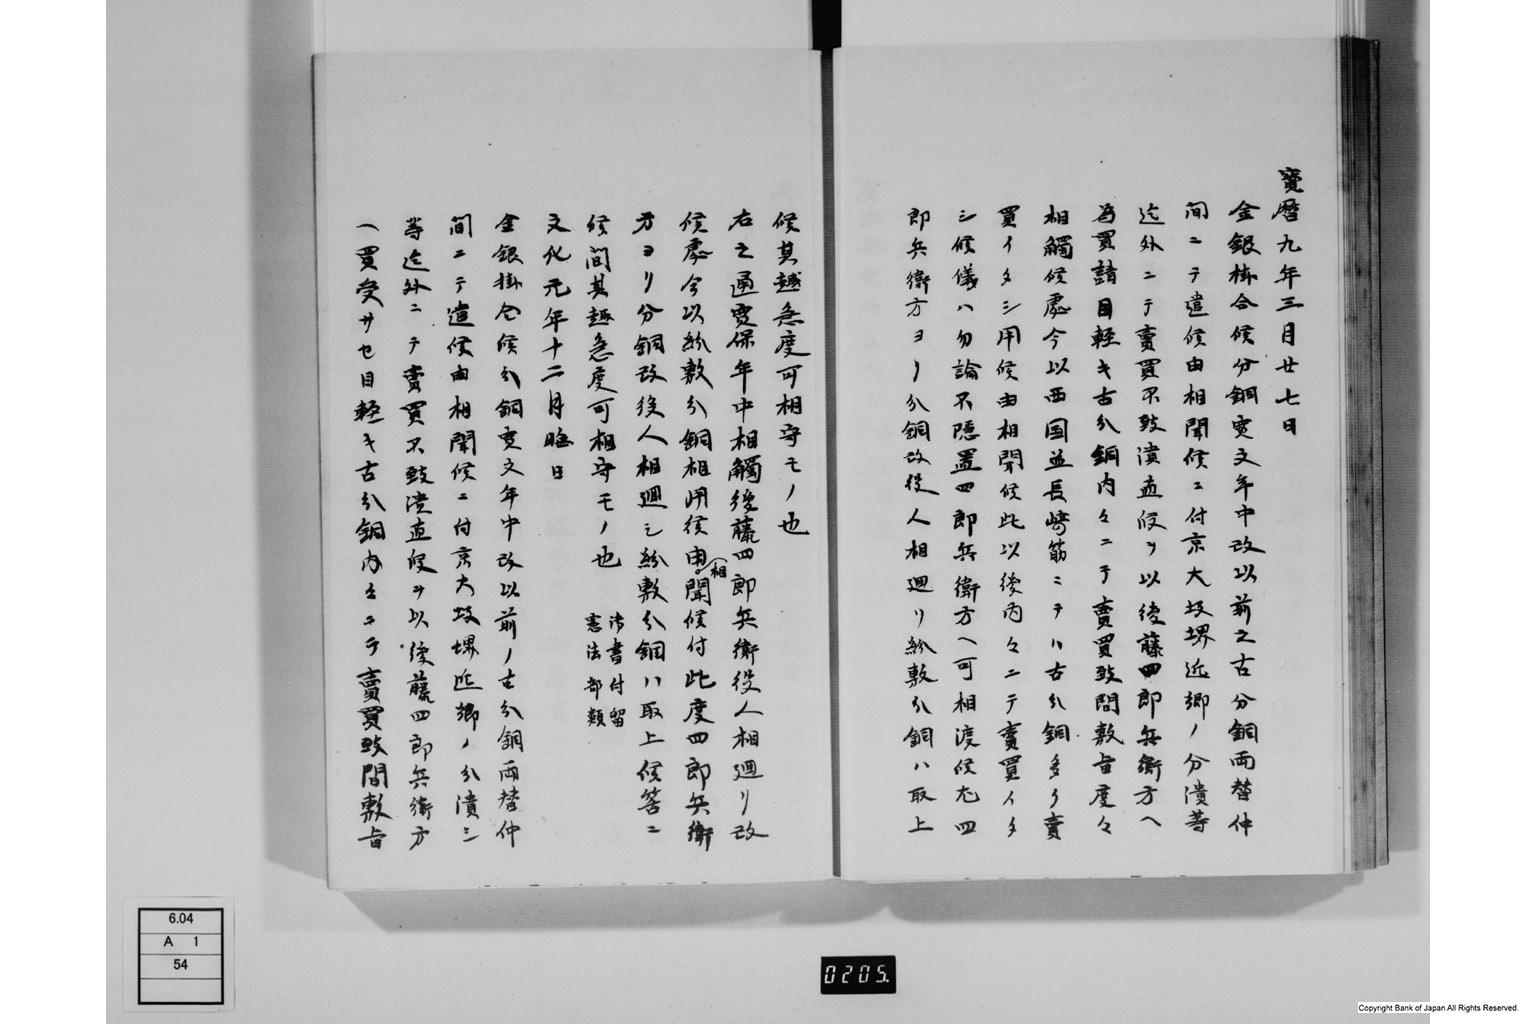 寶暦九年三月廿七日
金銀掛合候分銅寛文年中改以前之古分銅両替仲
間ニテ遣候由相聞候ニ付京大坂堺近郷ノ分潰等
迄外ニテ賣買不致潰直段ヲ以後藤四郎兵衛方へ
為買請目軽キ古分銅内々ニテ賣買致間敷旨度々
相觸候處今以西国並長崎筋ニテハ古分銅多ク賣
買イタシ用候由相聞候此以後内々ニテ賣買イタ
シ候儀ハ勿論不隠置四郎兵衛方へ可相渡候尤四
郎兵衛方ヨリ分銅改役人相廻リ紛敷分銅ハ取上
候其趣急度可相守モノ也
右之通寛保年中相觸後藤四郎兵衛役人相廻リ改
候處今以紛敷分銅相用候由相聞候付此度四郎兵衛
方ヨリ分銅改役人相廻シ紛敷分銅ハ取上候筈ニ
候間其趣急度可相守モノ也
御書付留
憲法部類
文化元年十二月晦日
金銀掛合候分銅寛文年中改以前ノ古分銅両替仲
間ニテ遣候由相聞候ニ付京大坂堺近郷ノ分潰シ
等迄外ニテ賣買不致潰直段ヲ以後藤四郎兵衛方
へ買受サセ目軽キ古分銅内々ニテ賣買致間敷旨
6.04
A 1
54
0205.
Copyright Bank of Japan All Rights Reserved.